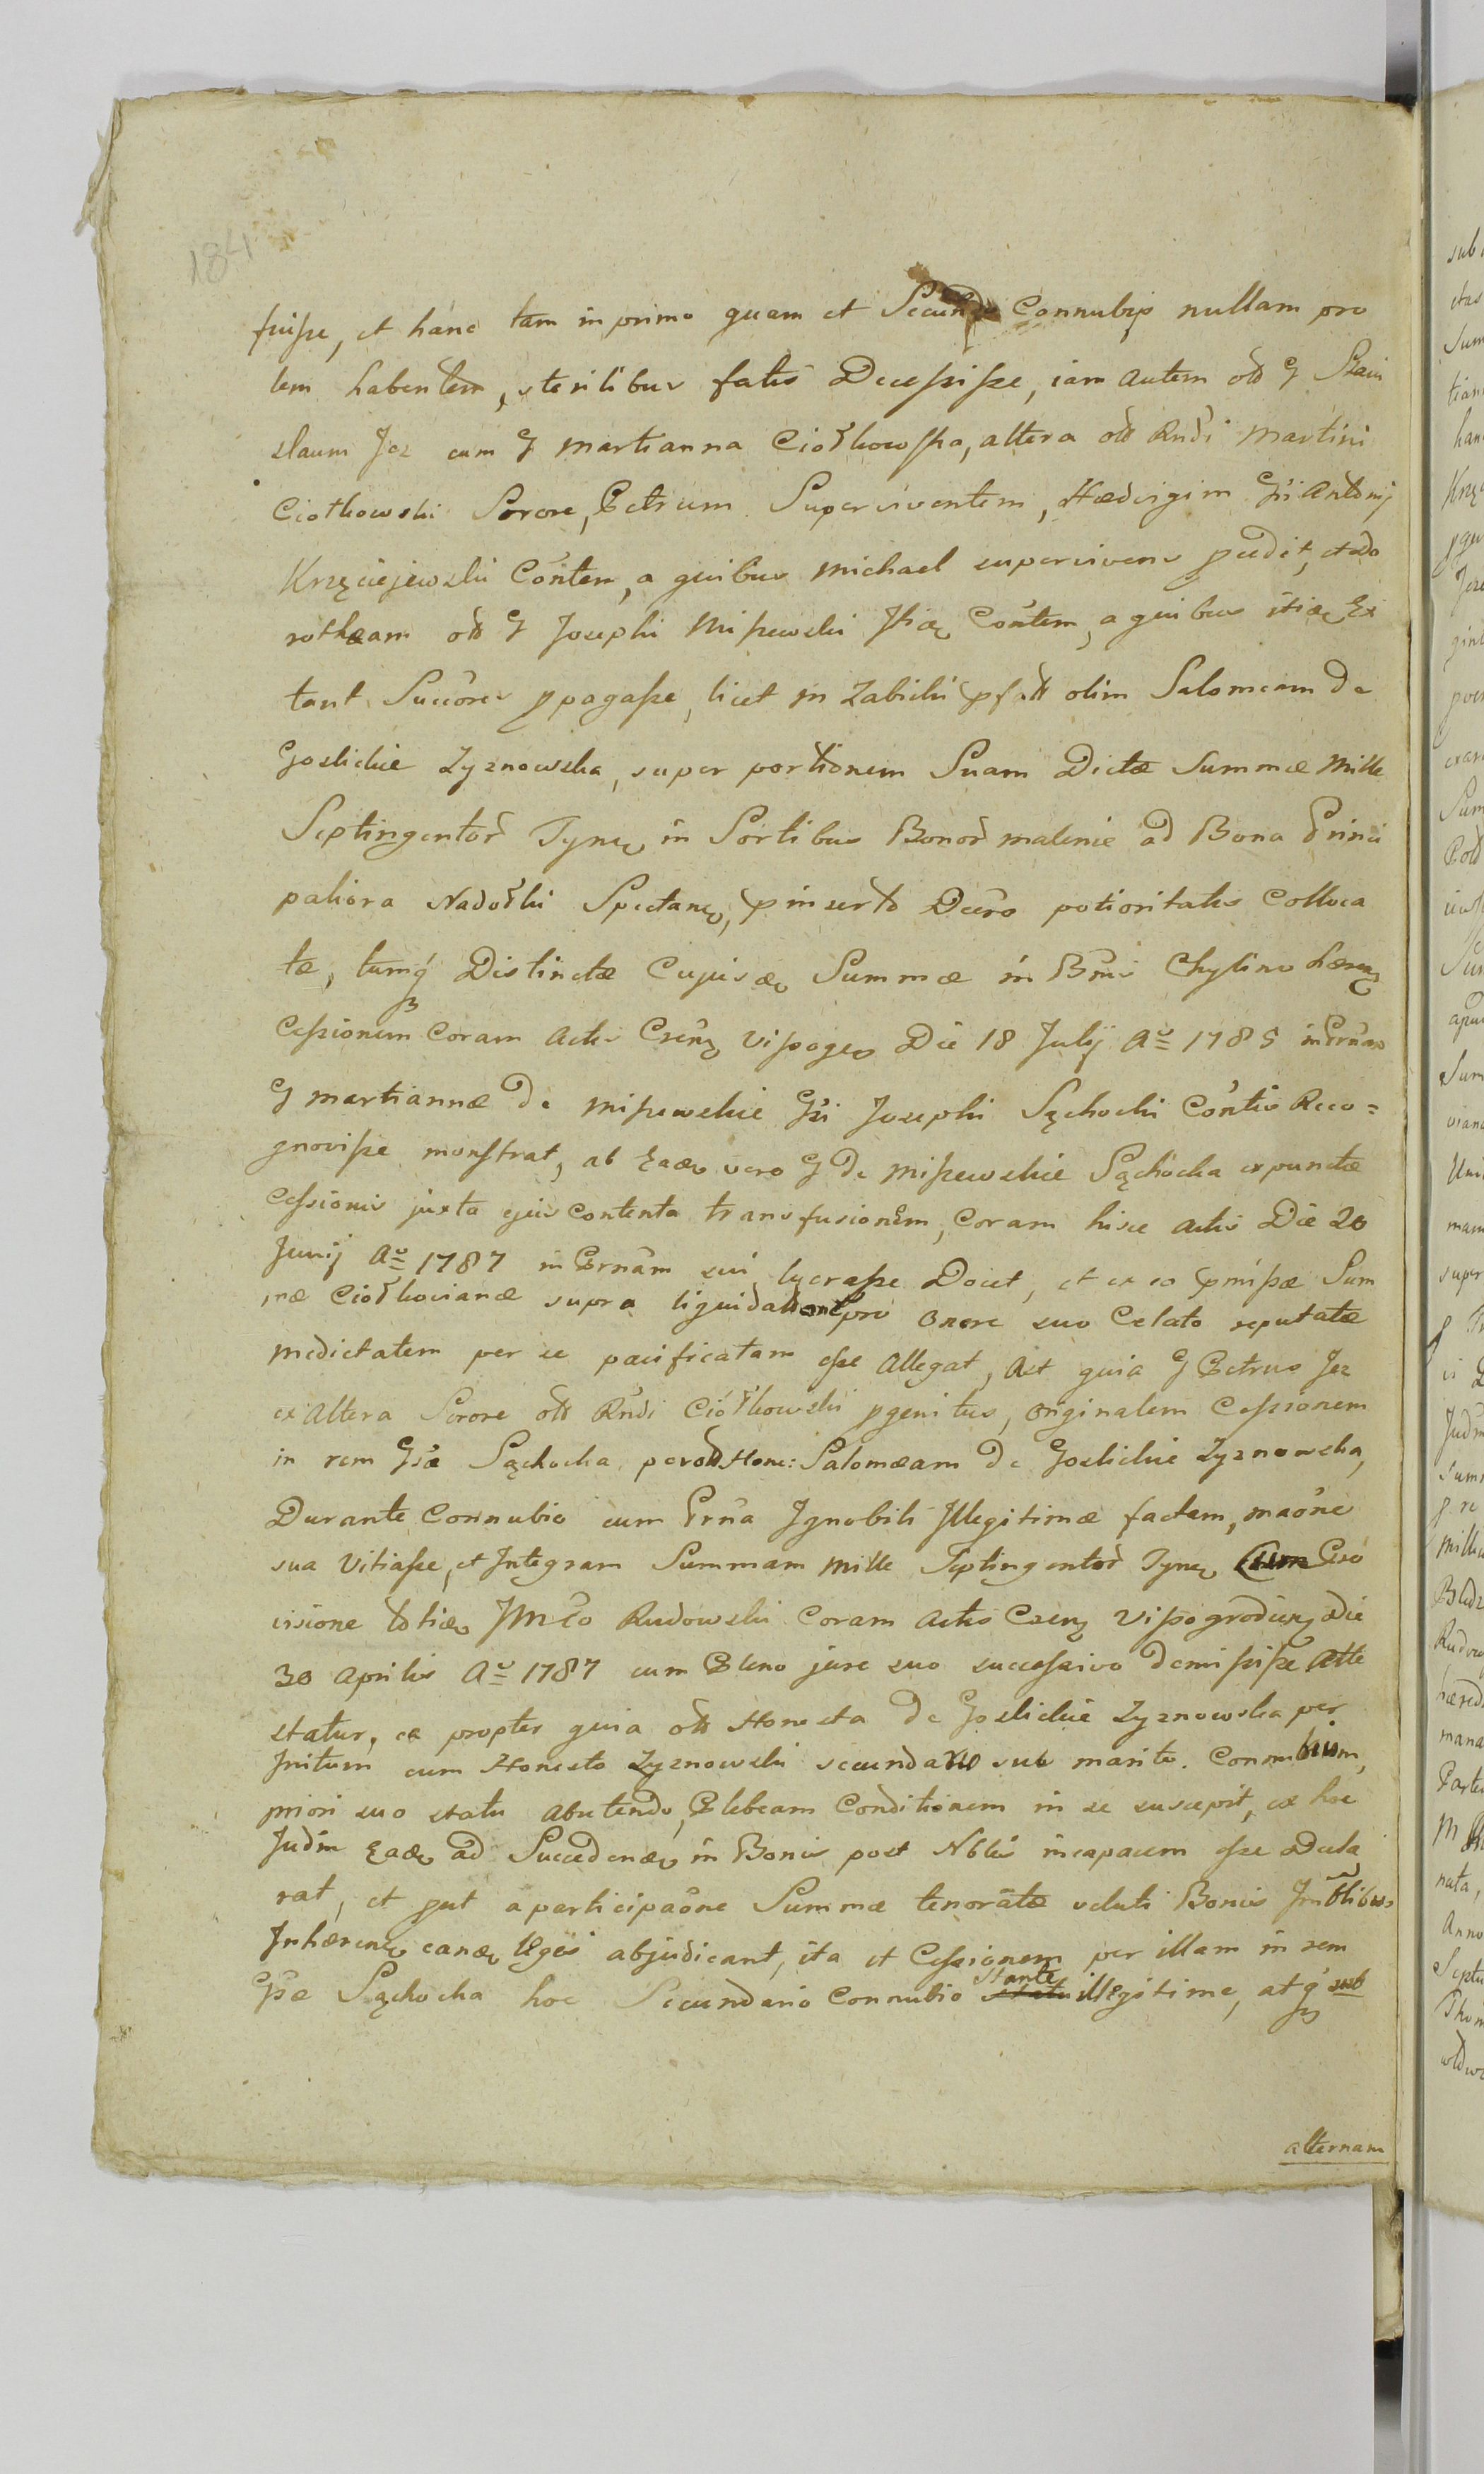 184
fuisse, et hanc tam in primo quam et Secundo Connubijs nullam pro
lem habentem, sterilibus fatis Decessisse, iam autem old G Stani
slaum Jez cum G Martianna Ciołkowska, altera old Rndi Martini
Ciołkowski Sorore, Petrum Superviventem, Hedvigim Gsi Antonij
Krzęciejewski Contem, a quibus Michael supervivens pcedit, et do
rotheam old G Josephi Miszewski Contem, a quibus Ex
tant Succores ppagasse, licet in Zabicki olim Salomeam de
Goslickie Zyznowska, super portionem Suam Dictæ Summæ Mille
Septingentor Tynf in Sortibus Bonor Malenie ad Bona Princi
paliora Nadołki Spectan, pinserto Decro potioritatis Colloca
tæ, tumq Distinctæ Summæ in Bnis Chylino
Cessionem Coram Actis Csen Vissoge Die 18 Julij Ao 1785 in Prnam
G Martiannæ de Miszewskie Gsi Josephi Sąchocki Contis Reco=
gnovisse monstrat, ab Ead vero G de Miszewskie Sąchocka expunctæ
Cessionis juxta ejus Contenta transfusionem, Coram hisce Actis Die 20
Junij Ao 1787 in Prnam sui lucrasse Docet, et ex eo pmissæ Sum
mæ Ciołkovianæ supra liquidatione pro Onere suo Celato reputatæ
medietatem per se pacificatam esse Allegat, Ast quia G Petrus Jez
ex Altera Sorore old Rndi Ciołkowski pgenitus, originalem Cessionem
in rem Gsæ Sąchocka per old Hone: Salomæam de Goslickie Zyznowska,
Durante Connubio cum Prna Ignobili Illegitimæ factam, maone
sua Vitiasse, et Integram Summam Mille Septingentor Tynf Cum Pro
visione Rudowski Coram Actis Csen Vissogrodien Die
30 Aprilis Ao 1787 cum Pleno jure suo successivo demisisse Atte
statur, ea propter quia old Honesta de Goslickie Zyznowska per
Initum cum Honesto Zyznowski secundario suo marito Connubium,
priori suo statu Abutendo, Plebeam Conditionem in se suscepit, ex hoc
Judm Ead ad Succedend in Bonis post Nbles incapacem esse Decla
rat, et put a participaone Summæ tenoratæ veluti Bonis Imblibus
Inhæren eand leges abjudicant, ita et Cessionem per illam in rem
Gsæ Sąchocka hoc Secundario Connubio Stante illegitime, atq sub
alternam